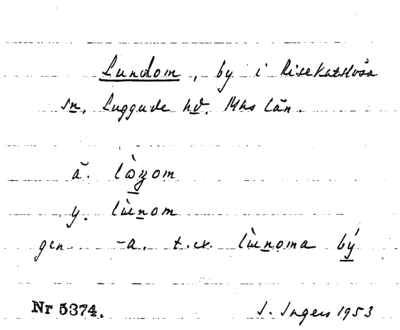 Lundom, by i Risekatslösa
sn, Luggude hd. Mhs län.
ä. 
y. 
gen -a. t. ex. bý̲
Nr 5374. I. Ingers 1953